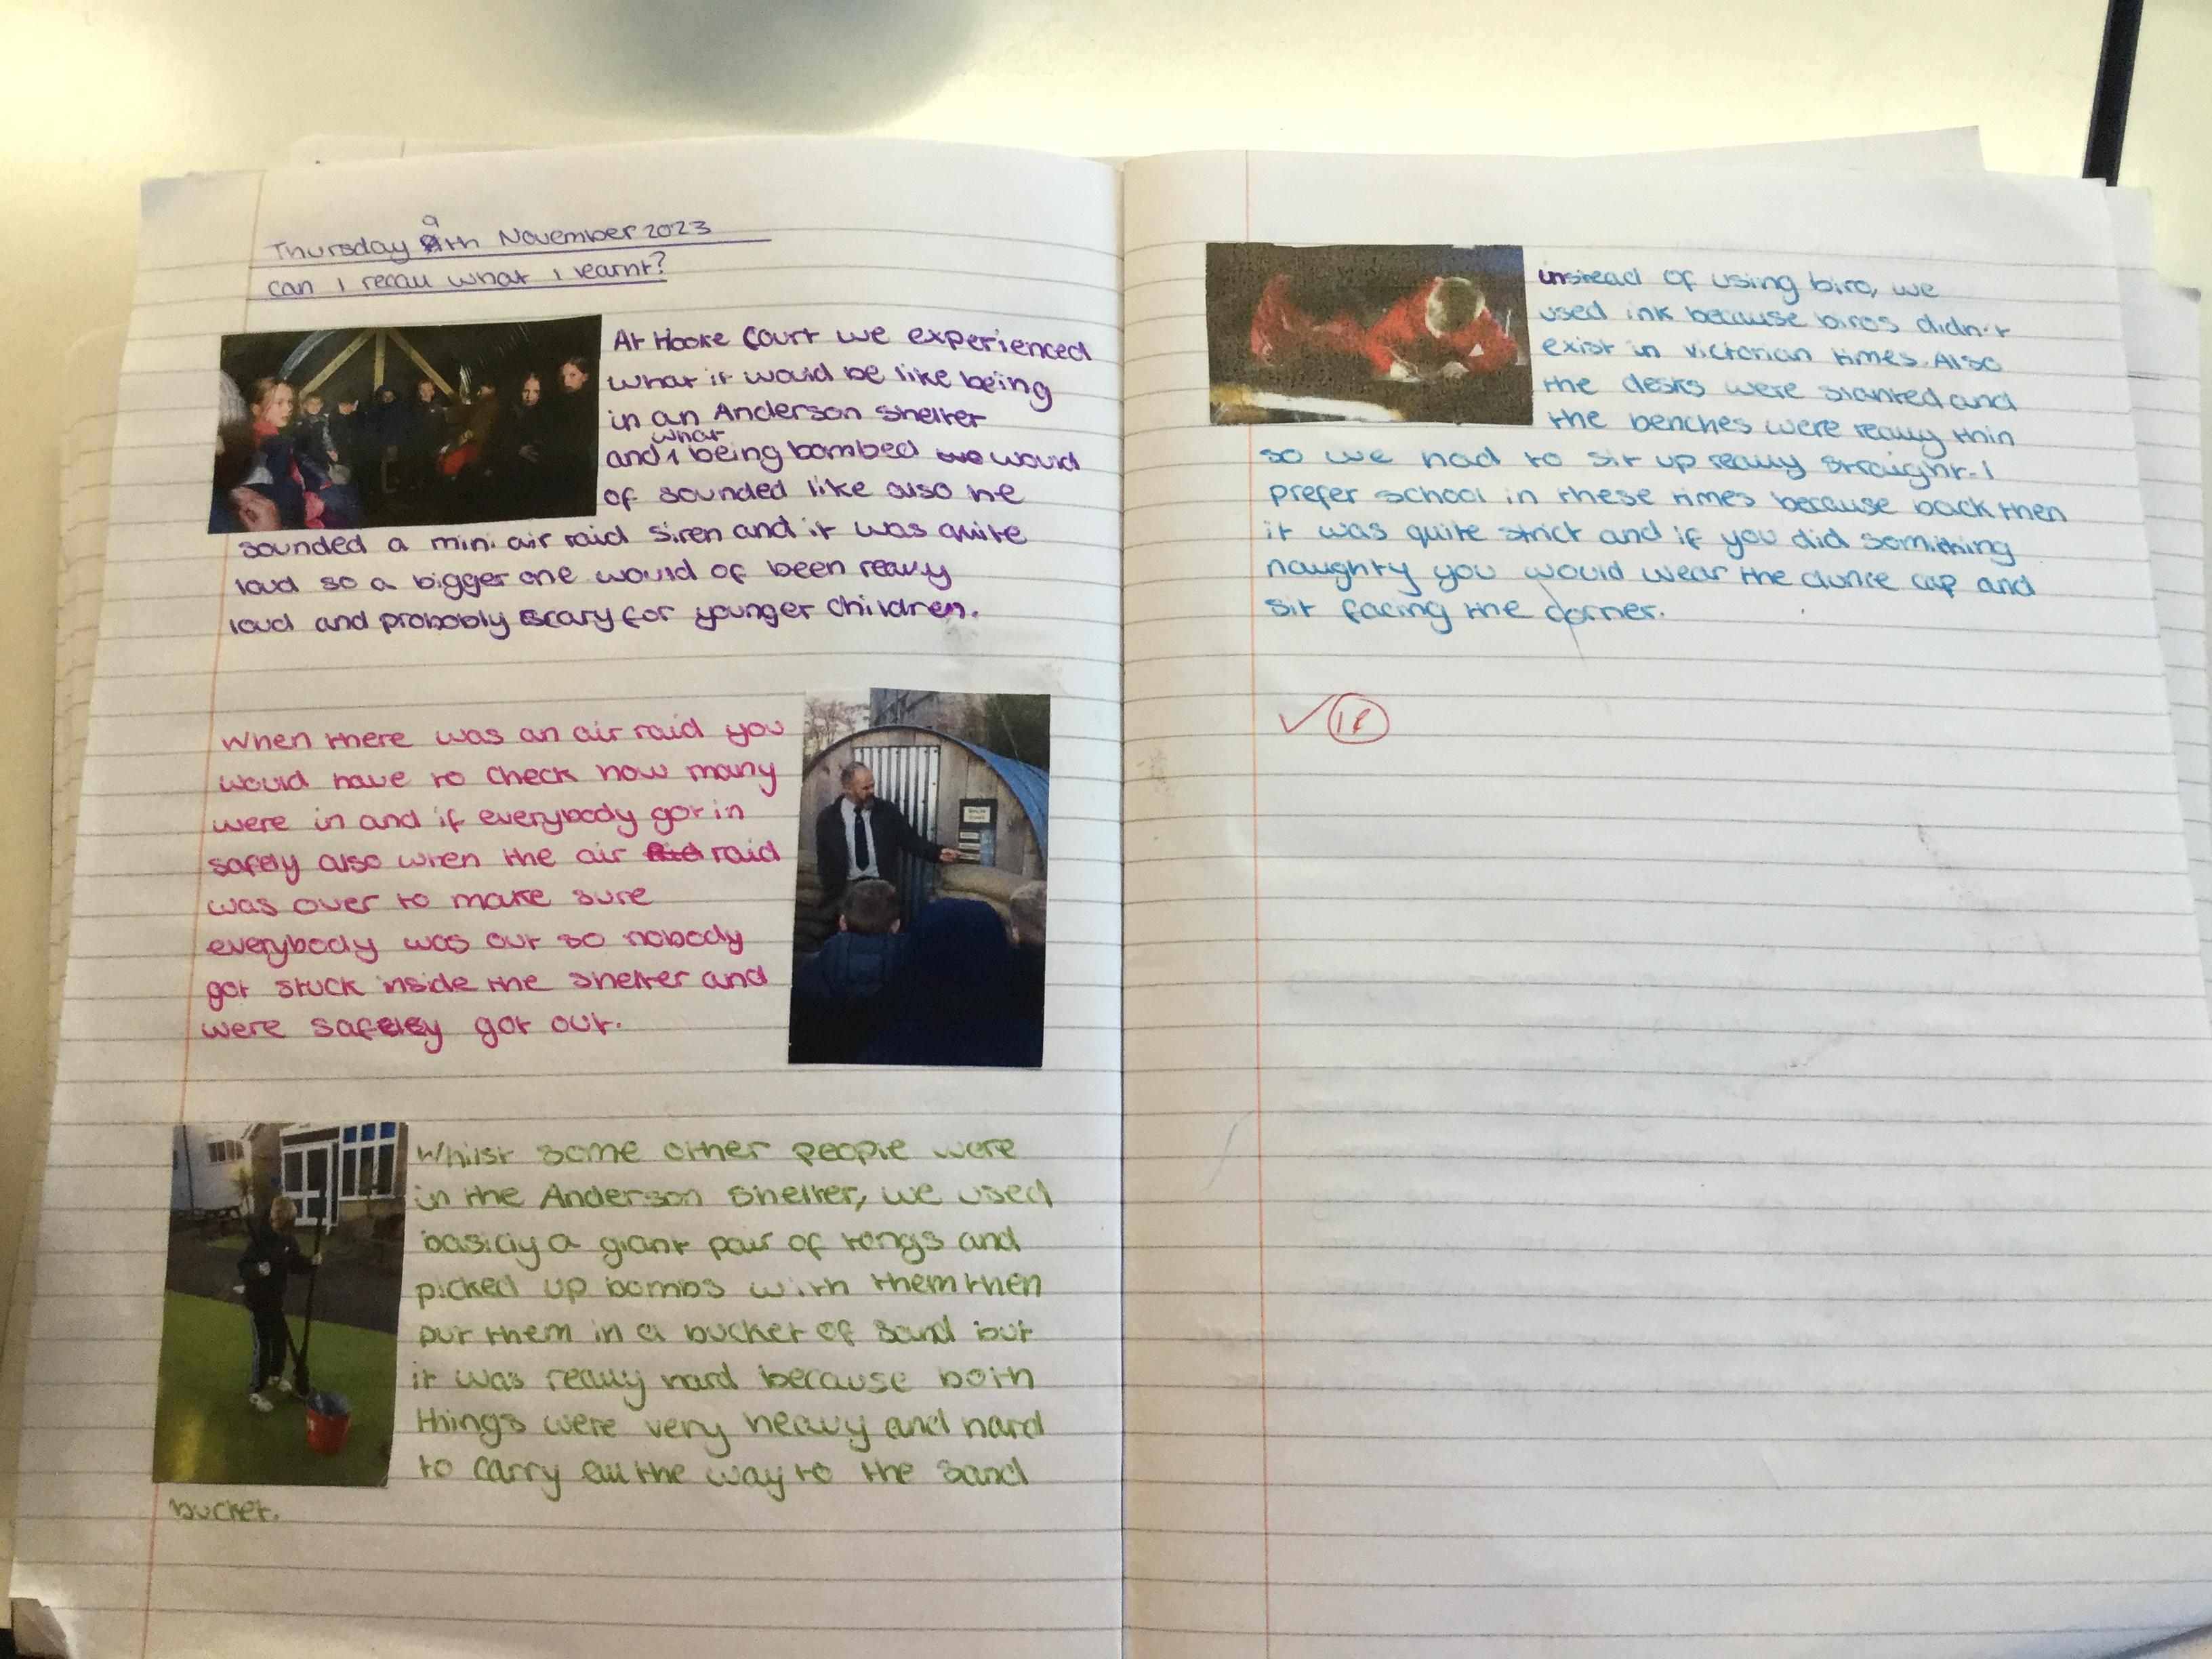 Thursday 9th November 2023
can I recall what I learnt?
At Hooke Court we experienced
what it would be like being
in an Anderson shelter
what
and being bombed would
of sounded like also he
sounded a mini air raid siren and it was quite
loud so a bigger one would of been really
loud and probobly scary for younger children.
When there was an air raid you
would have to check how many
were in and if everybody got in
safely also when the air raid
was over to make sure
everybody was out so nobody
got stuck inside the shelter and
were safely got out.
Whilst some other people were
in the Anderson shelter, we used
basicly a giant pair of tongs and
picked up bombs with them then
put them in a bucket of sand but
it was really hard because both
things were very heavy and hard
to carry all the way to the sand
bucket.
instead of using biro, we
used ink because biros didn't
exist in victorian times. Also
the desks were slanted and
the benches were really thin
so we had to sit up really straight. I
prefer school in these times because back then
it was quite strict and if you did somithing
naughty you would wear the dunce cap and
sit facing the corner.